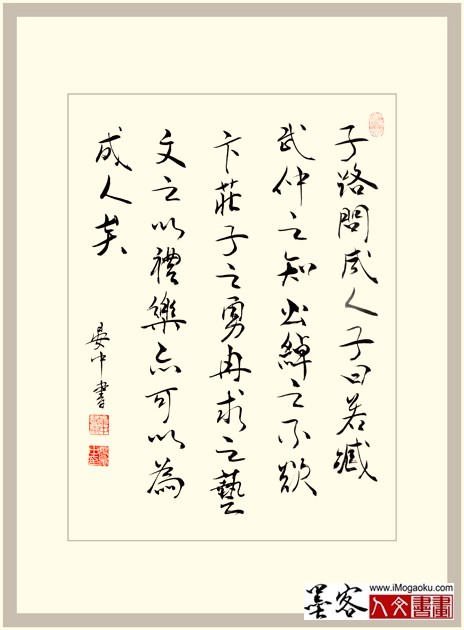 子路問成人子曰若臧
武仲之知公綽之不欲
卞莊子之勇冉求之藝
文之以禮樂亦可以為
成人矣
晏中書
www.iMogaoku.com
墨客
人文書畫